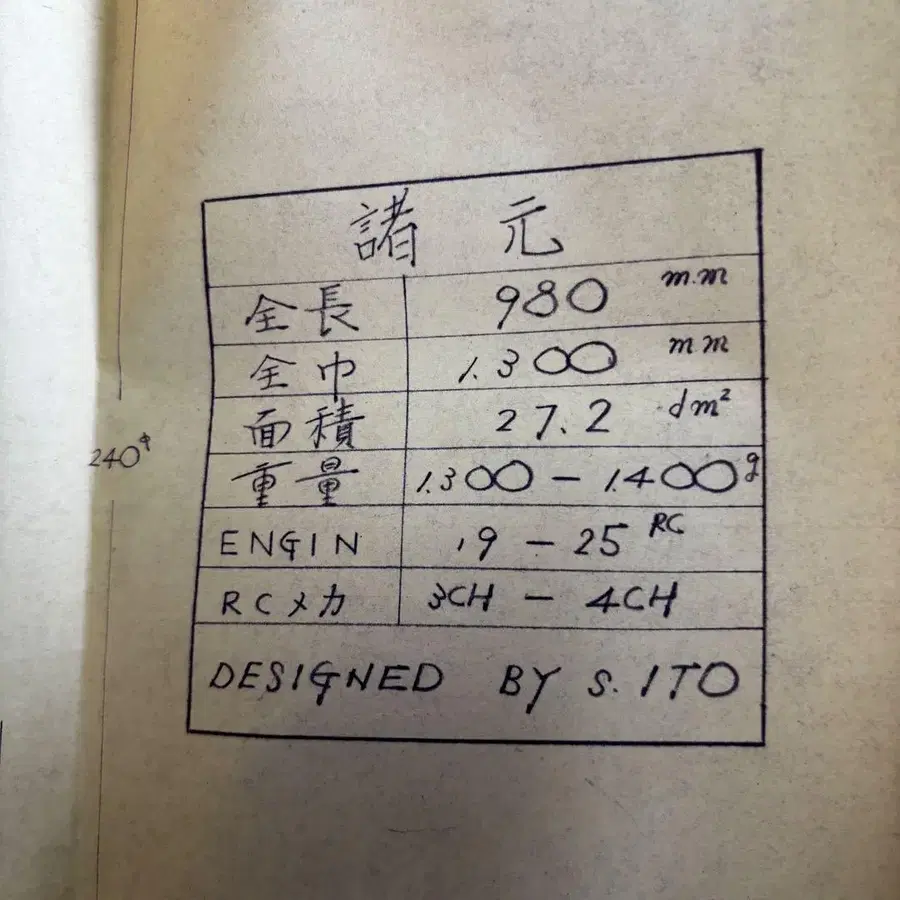 諸元
全長 980 m.m
全巾 1.300 m.m
面積 27.2 dm²
重量 1.300 - 1.400g
ENGIN .19 - 25 RC
RCメカ 3CH - 4CH
DESIGNED BY S. ITO
240φ